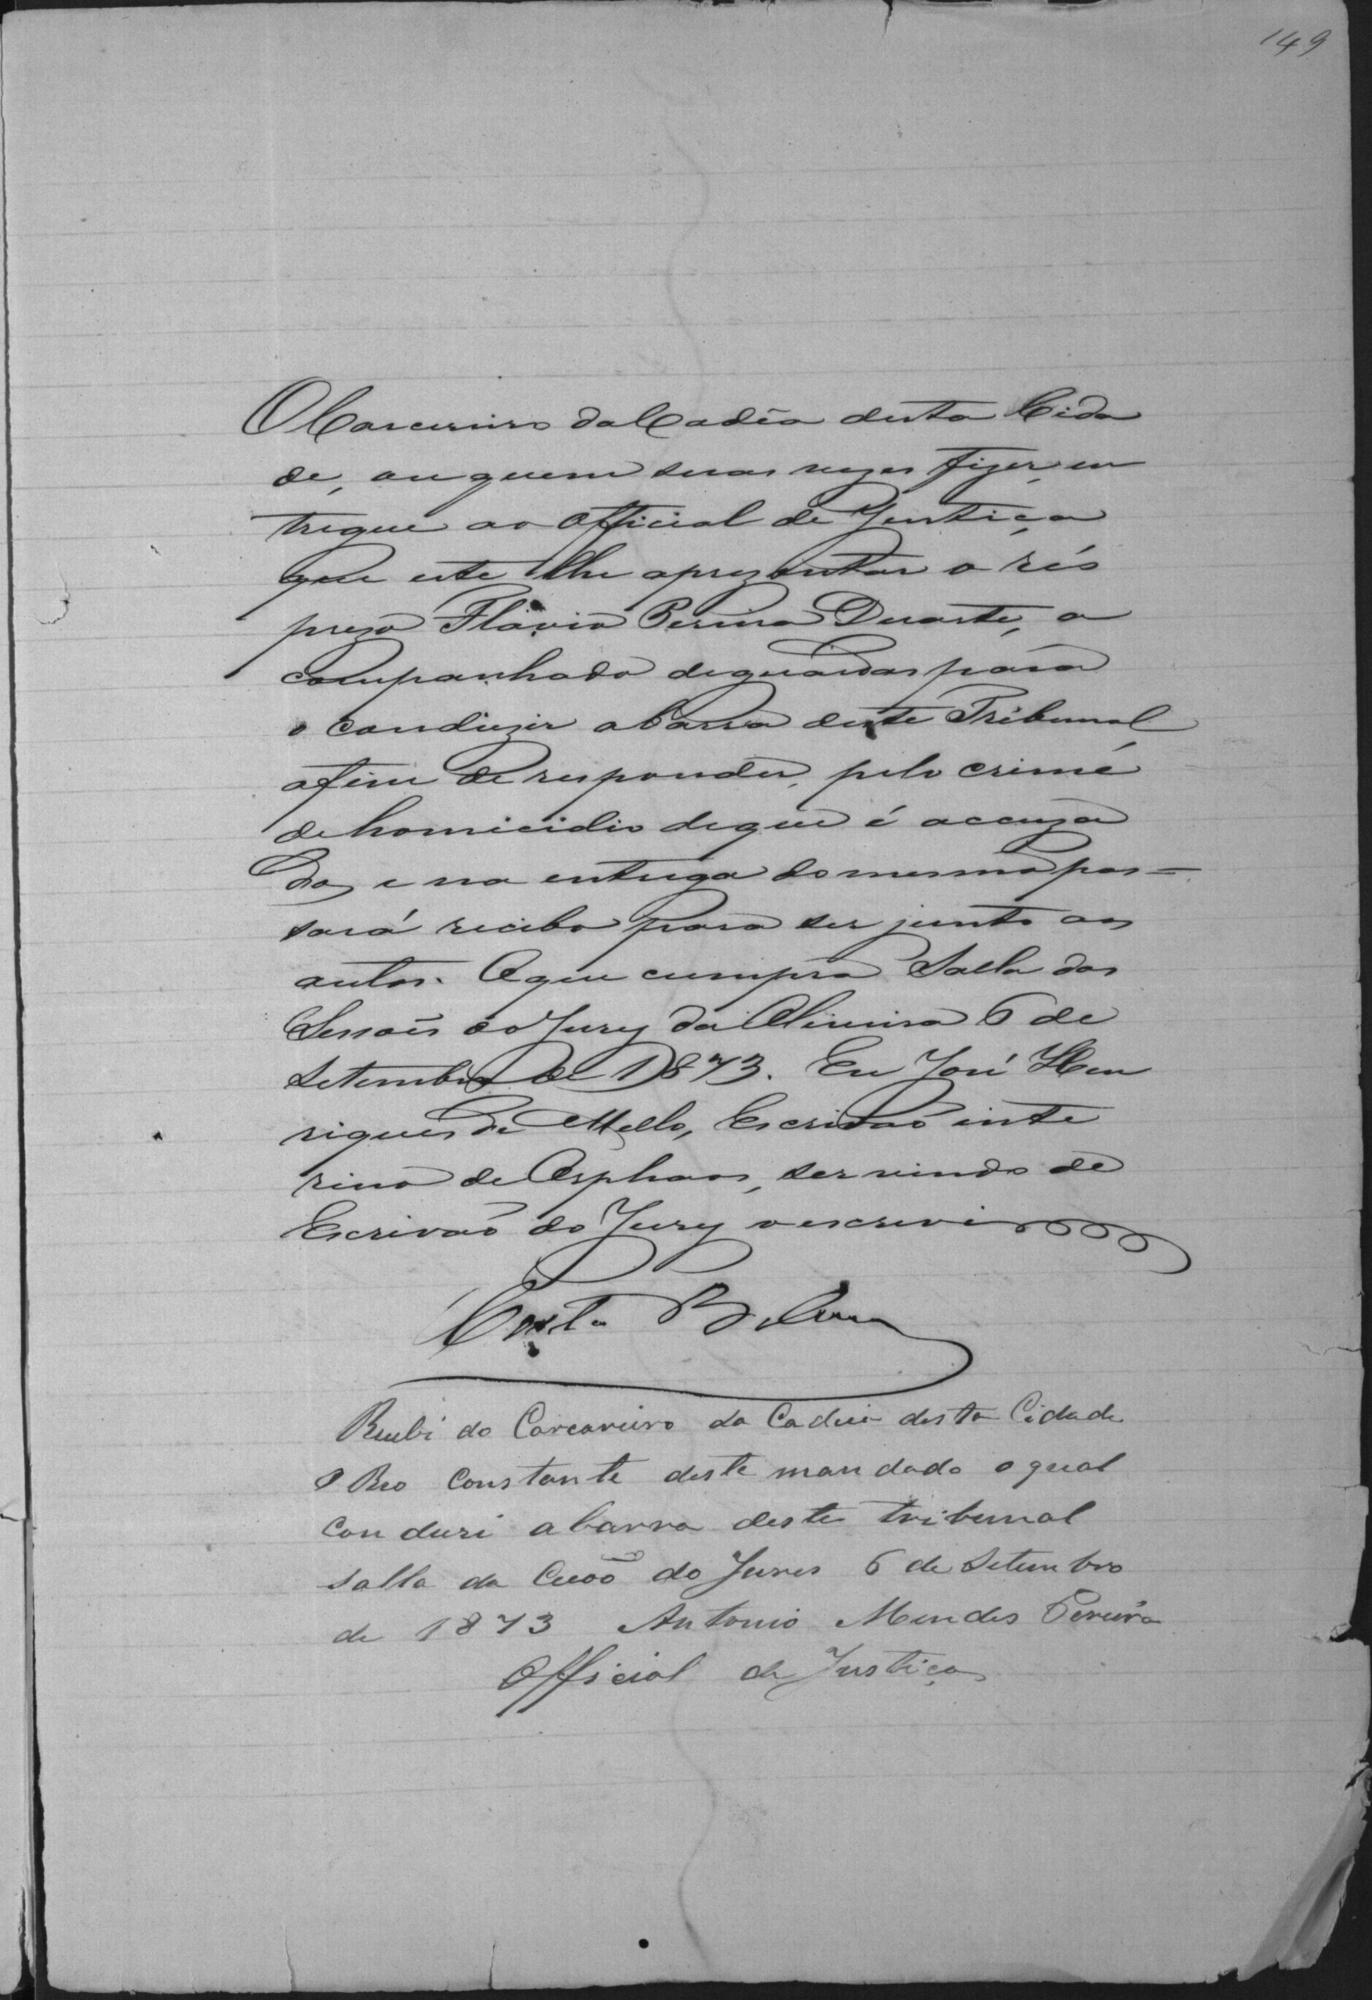 149
O Carcereiro da Cadêa desta Cida
de, ou quem suas vezes fizer, en
tregue ao Official de Justiça
que este lhe aprezentar o réo
prezo Flavio Pereira Duarte, a
companhado de guardas para
o conduzir a barra deste Tribunal
afim de responder, pelo crime
de homicidio de que é accuza
do, e na entrega do mesmo pas=
sará recibo para ser junto aos
autos. O que cumpra Salla das
Sessoẽs do Jury da Oliveira 6 de
Setembro de 1873. Eu José Hen
riques de Mello, Escrivaõ inte
rino de Orphaos, servindo de
Escrivaõ do Jury o escrevi
Costa
Recibi do Carcareiro da Cadeia desta Cidade
O Reo Constante deste mandado o qual
conduzi a barra deste tribunal
salla da do Jures 6 de Setembro
de 1873 Antonio Mendes Pereira
Official de Justiça